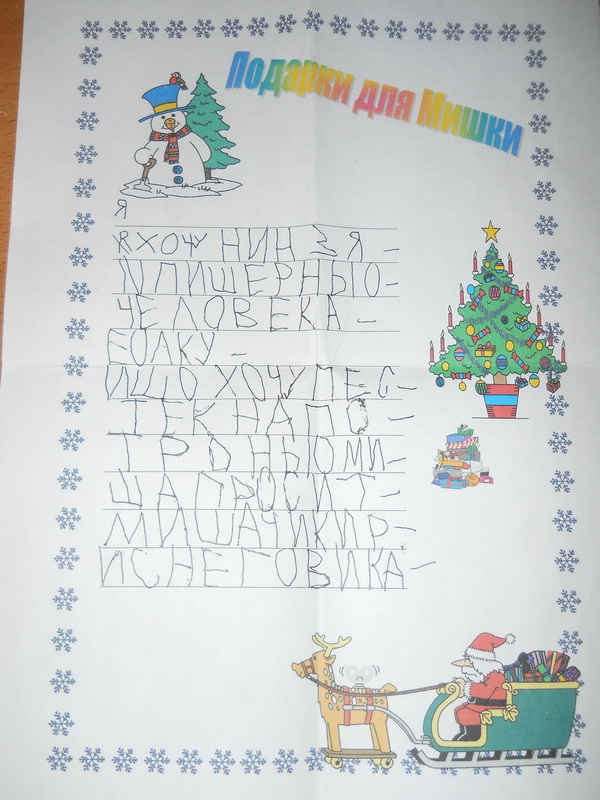 Подарки для Мишки
Я
Я ХОЧУ НИНЗЯ-
И ПИШЕРНЫЮ-
ЧЕЛОВЕКА-
ЕОЛКУ-
ИЩО ХОЧУ ПЕС-
ТЕК НА ПО-
ТРОНЫЮ МИ-
ША ПРОСИТ-
МИШАЧИКИР-
ИСНЕГОВИКА-